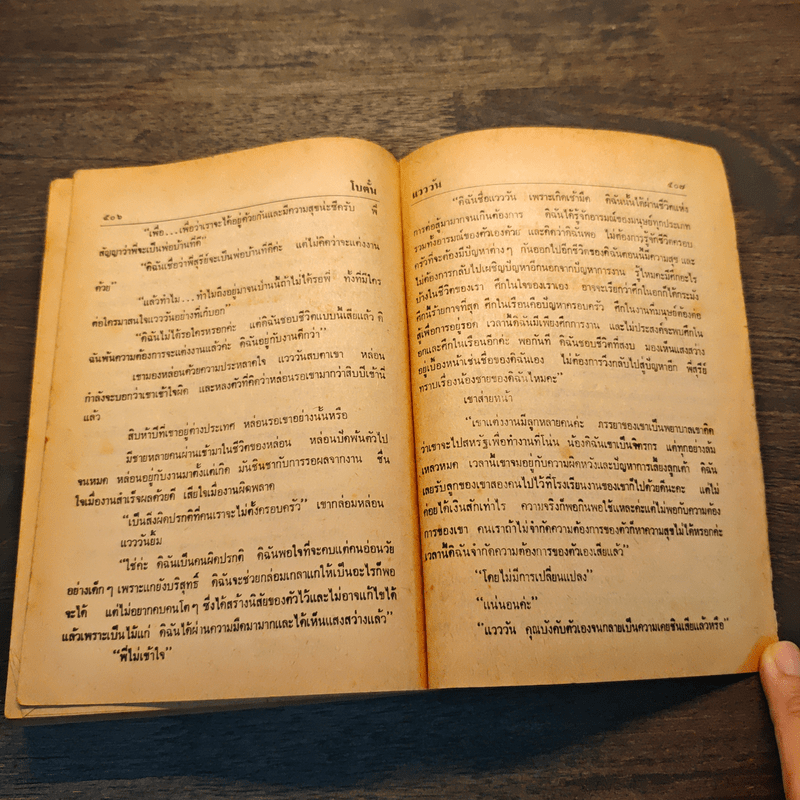 ๕๐๖
โบตั๋น
"เพื่อ...เพื่อว่าเราจะได้อยู่ด้วยกันและมีความสุขน่ะซีครับ พี่
สัญญาว่าพี่จะเป็นพ่อบ้านที่ดี"
"ดิฉันเชื่อว่าพี่สุรีย์จะเป็นพ่อบ้านที่ดีค่ะ แต่ไม่คิดว่าจะแต่งงาน
ด้วย"
"แล้วทำไม...ทำไมถึงอยู่มาจนป่านนี้ถ้าไม่ได้รอพี่ ทั้งที่มีใคร
ต่อใครมาสนใจแวววันอย่างพี่เก็บอก"
"ดิฉันไม่ได้รอใครหรอกค่ะ แต่ดิฉันชอบชีวิตแบบนี้เสียแล้ว ดิ
ฉันพ้นความต้องการจะแต่งงานแล้วค่ะ ดิฉันอยู่กับงานดีกว่า"
เขามองหล่อนด้วยความประหลาดใจ แวววันสบตาเขา หล่อน
กำลังจะบอกว่าเขาเข้าใจผิด และหลงตัวที่คิดว่าหล่อนรอเขามากว่าสิบปีเช้านี้
แล้ว
สิบห้าปีที่เขาอยู่ต่างประเทศ หล่อนรอเขาอย่างนั้นหรือ
มีชายหลายคนผ่านเข้ามาในชีวิตของหล่อน หล่อนปัดพ้นตัวไป
จนหมด หล่อนอยู่กับงานมาตั้งแต่เกิด มันชินชากับการรอผลจากงาน ชื่น
ใจเมื่องานสำเร็จผลด้วยดี เสียใจเมื่องานผิดพลาด
"เป็นสิ่งผิดปรกติที่คนเราจะไม่ตั้งครอบครัว" เขากล่อมหล่อน
แวววันยิ้ม
"ใช่ค่ะ ดิฉันเป็นคนผิดปรกติ ดิฉันพอใจที่จะคบแต่คนอ่อนวัย
อย่างเด็กๆ เพราะแกยังบริสุทธิ์ ดิฉันจะช่วยกล่อมเกลาแกให้เป็นอะไรก็พอ
จะได้ แต่ไม่อยากคบคนโตๆ ซึ่งได้สร้างนิสัยของตัวไว้และไม่อาจแก้ไขได้
แล้วเพราะเป็นไม้แก่ ดิฉันได้ผ่านความมืดมามากและได้เห็นแสงสว่างแล้ว"
"พี่ไม่เข้าใจ"
แวววัน
๕๐๗
"ดิฉันชื่อแวววัน เพราะเกิดเช้ามืด ดิฉันนั้นได้ผ่านชีวิตแห่ง
การต่อสู้มามากจนเกินต้องการ ดิฉันได้รู้จักอารมณ์ของมนุษย์ทุกประเภท
รวมทั้งอารมณ์ของตัวเองด้วย และคิดว่าดิฉันพอ ไม่ต้องการรู้จักชีวิตครอบ
ครัวที่จะต้องมีปัญหาต่างๆ กันออกไปอีกชีวิตของดิฉันตอนนี้มีความสุข และ
ไม่ต้องการกลับไปเผชิญปัญหาอีกนอกจากปัญหาการงาน รู้ไหมคะมีศึกอะไร
บ้างในชีวิตของเรา ศึกในใจของเราเอง อาจจะเรียกว่าศึกในอกก็ได้กระมัง
ศึกนี้ร้ายกาจที่สุด ศึกในเรือนคือปัญหาครอบครัว ศึกในงานที่มนุษย์ต้องต่อ
สู้เพื่อการอยู่รอด เวลานี้ดิฉันมีเพียงศึกการงาน และไม่ประสงค์จะพบศึกใน
อกและศึกในเรือนอีกค่ะ พอกันที ดิฉันชอบชีวิตที่สงบ มองเห็นแสงสว่าง
อยู่เบื้องหน้าเช่นชื่อของดิฉันเอง ไม่ต้องการวิ่งกลับไปสู่ปัญหาอีก พี่สุรีย์
ทราบเรื่องน้องชายของดิฉันไหมคะ"
เขาส่ายหน้า
"เขาแต่งงานมีลูกหลายคนค่ะ ภรรยาของเขาเป็นพยาบาลเขาคิด
ว่าเขาจะไปสหรัฐเพื่อทำงานที่โน่น น้องดิฉันเขาเป็นจิตรกร แต่ทุกอย่างล้ม
เหลวหมด เวลานี้เขาจมอยู่กับความผิดหวังและปัญหาการเลี้ยงลูกเต้า ดิฉัน
เลยรับลูกของเขาสองคนไปไว้ที่โรงเรียนงานของเขาก็ไปด้วยดีนะคะ แต่ไม่
ค่อยได้เงินสักเท่าไร ความจริงก็พอกินพอใช้แหละค่ะแต่ไม่พอกับความต้อง
การของเขา คนเราถ้าไม่จำกัดความต้องการของตัวก็หาความสุขไม่ได้หรอกค่ะ
เวลานี้ดิฉันจำกัดความต้องการของตัวเองเสียแล้ว"
"โดยไม่มีการเปลี่ยนแปลง"
"แน่นอนค่ะ"
"แวววัน คุณบังคับตัวเองจนกลายเป็นความเคยชินเสียแล้วหรือ"